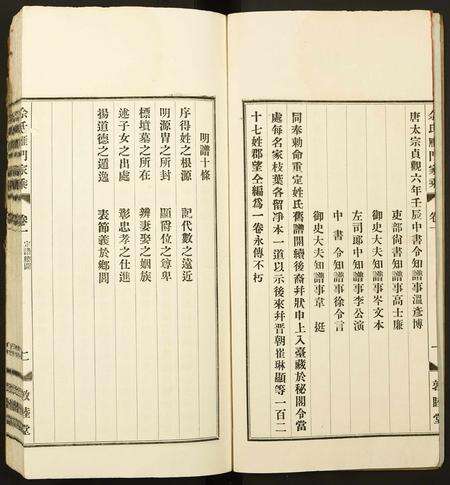 唐太宗貞觀六年壬辰中書令知譜事溫彥博
吏部尚書知譜事高士廉
御史大夫知譜事岑文本
左司郎中知譜事李公演
中書令知譜事徐令言
御史大夫知譜事韋挺
同奉勅命重定姓氏舊譜開續後裔幷狀申上入臺藏於秘閣令當
處每名家枝葉各留淨本一道以示後來幷晋朝崔琳顯等一百二
十七姓郡望仝編爲一卷永傳不朽
敦睦堂
明譜十條
序得姓之根源 記代數之遠近
明源冑之所封 顯爵位之尊卑
標墳墓之所在 辨妻娶之姻族
述子女之出處 彰忠孝之仕進
揚道德之遁逸 表節義於鄉閭
門家乘 卷一
敦睦堂